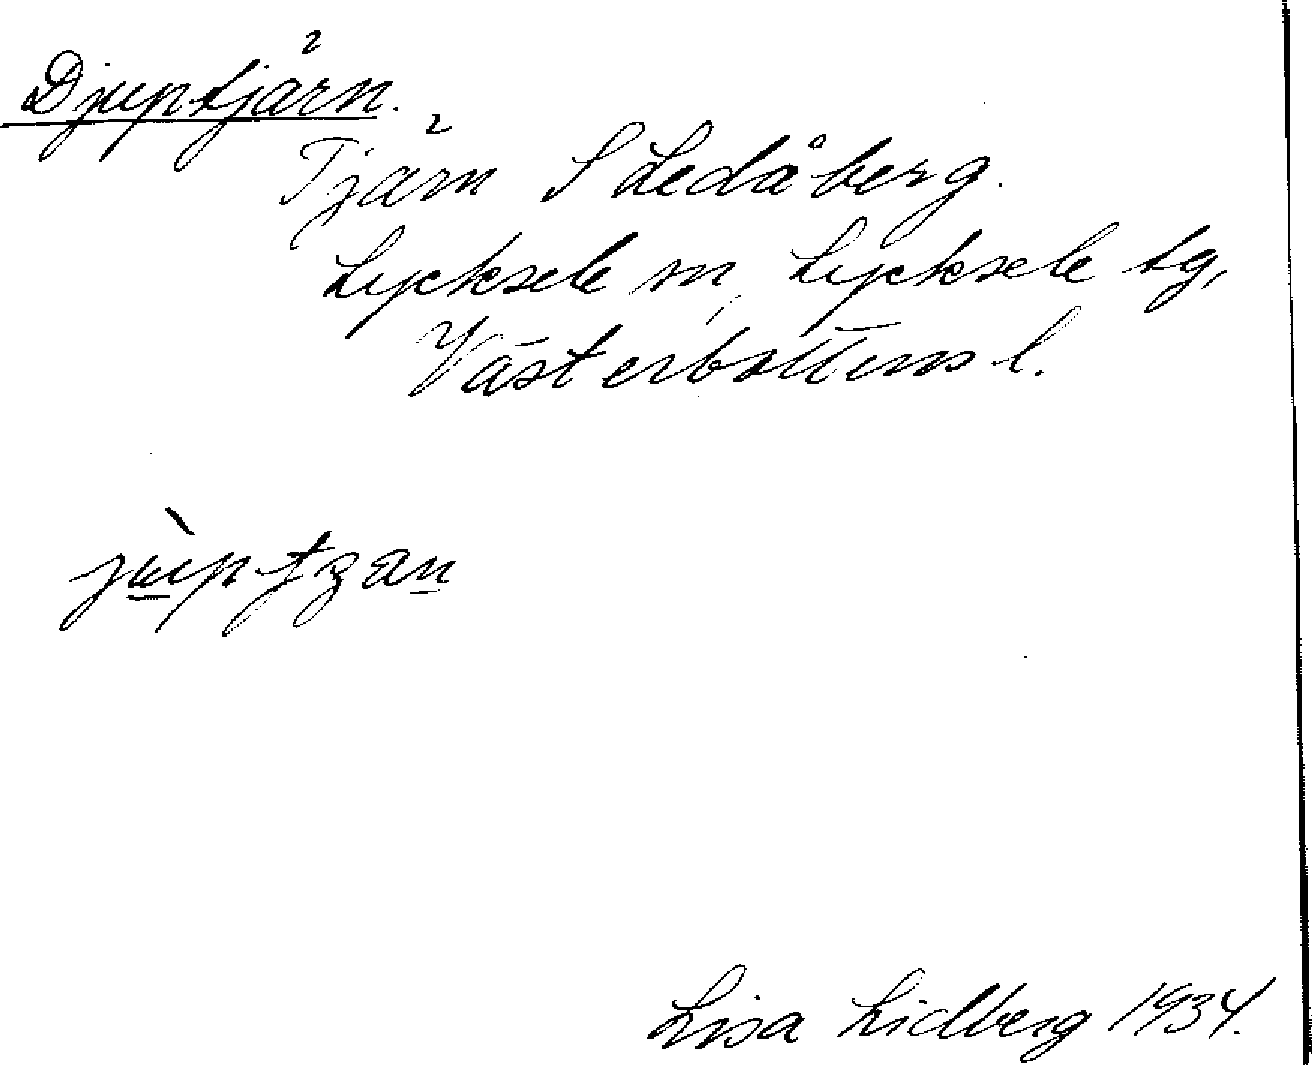 Djuptjärn.
Tjärn S Ledåberg.
Lycksele sn, Lycksele tg,
Västerbottens l.
Lisa Lidberg 1934.